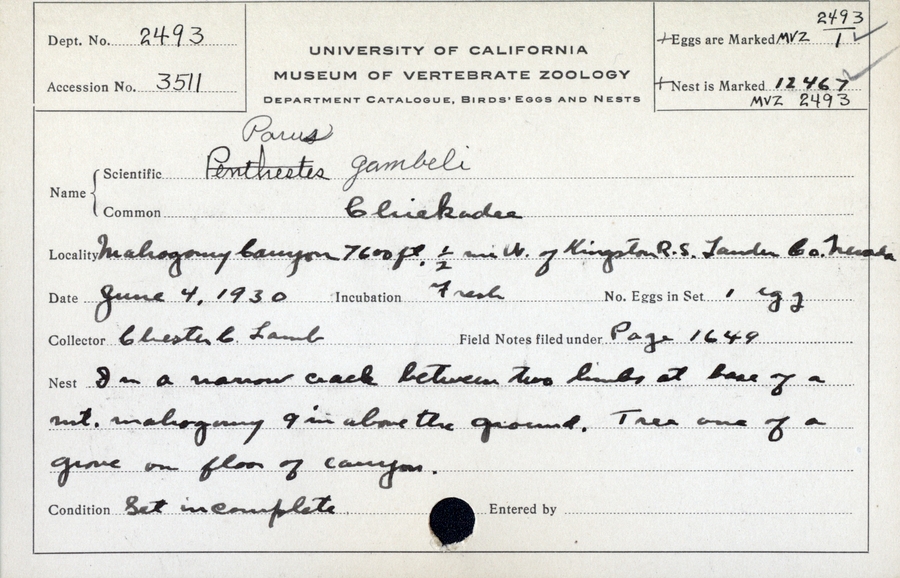 Dept. No. 2493
Accession No. 3511
UNIVERSITY OF CALIFORNIA
MUSEUM OF VERTEBRATE ZOOLOGY
DEPARTMENT CATALOGUE, BIRDS' EGGS AND NESTS
2493
+Eggs are Marked MVZ 1
+Nest is Marked 12467
MVZ 2493
Parus
Name Scientific Penthestes gambeli
Common Chickadee
Locality Mahogomy Canyon 7600 ft, 1/2 mi W. of Kingston R.S. Lander Co. Nevada
Date June 4, 1930 Incubation Fresh No. Eggs in Set 1 egg
Collector Chester C. Lamb Field Notes filed under Page 1649
Nest In a narrow crack between two limbs at base of a
mt. mahogomy 9 in above the ground. Tree one of a
grove on floor of canyon.
Condition Set incomplete. Entered by